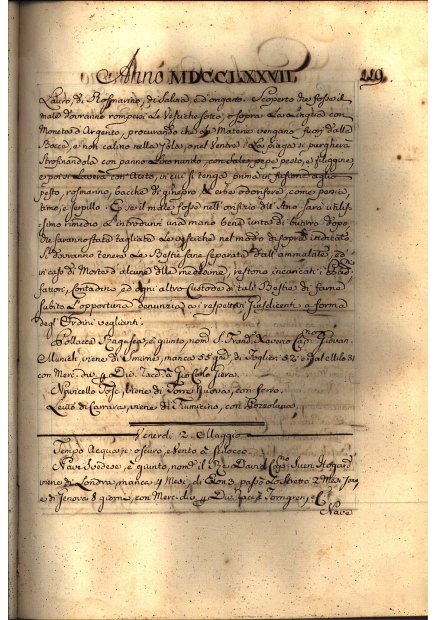 Anno MDCCLXXVII. 119.
Lauro, di Rosmarino, di Salvia, e d'origano. Scoperto che fosse il
male dovranno rompersi le Vesciche sotto, o sopra la Lingua con
Moneta d'Argento, procurando che le Materie vengano fuori dalla
Bocca, e non calino nella Gola, o nel Ventre. La piaga si purgherà
Strofinandola con panno, con Sale, pepe pesto, e filiggine,
e poi si Laverà con Aceto, in cui si tenga prima in fusione aglio
pesto, rosmarino, bacche di ginepro, ed erbe odorifere, come
timo, e serpillo. E se il male fosse nell'orifizio dell'Ano sarà utilis-
simo rimedio l'introdurvi una mano bene unta di butirro dopo
che saranno state tagliate le Vesciche nel modo di sopra indicato.
Si dovranno tenere le Bestie sane separate dall'ammalate, ed
in caso di Morte di alcune delle medesime, restono incaricati i
Contadino ed ogni altro Custode di tali Bestie di farne
subito l'opportuna denunzia a' respettivi Giusdicenti a forma
degl'Ordini veglianti.
Pollacca e quinto, nom. S. Fran. Xaverio Cap. Giovan
viene di Smirne, manca 55 gni. di 52
con Merc. div.
Navicello Tosc. viene di Torre Nuova, con ferro.
Leuto di Carrara, viene di Fiumicino, con Pozzolana.
Venerdì 2. Maggio
Tempo Acquoso, oscuro, e Vento a Scirocco.
Nave Svedese, e quinto, nom. il Daniel Cap. Suen
viene di Londra, manca 4 Mesi, di passò lo Stretto 2 Mesi
e di Genova 8 giorni, con Merc. div.
Nave